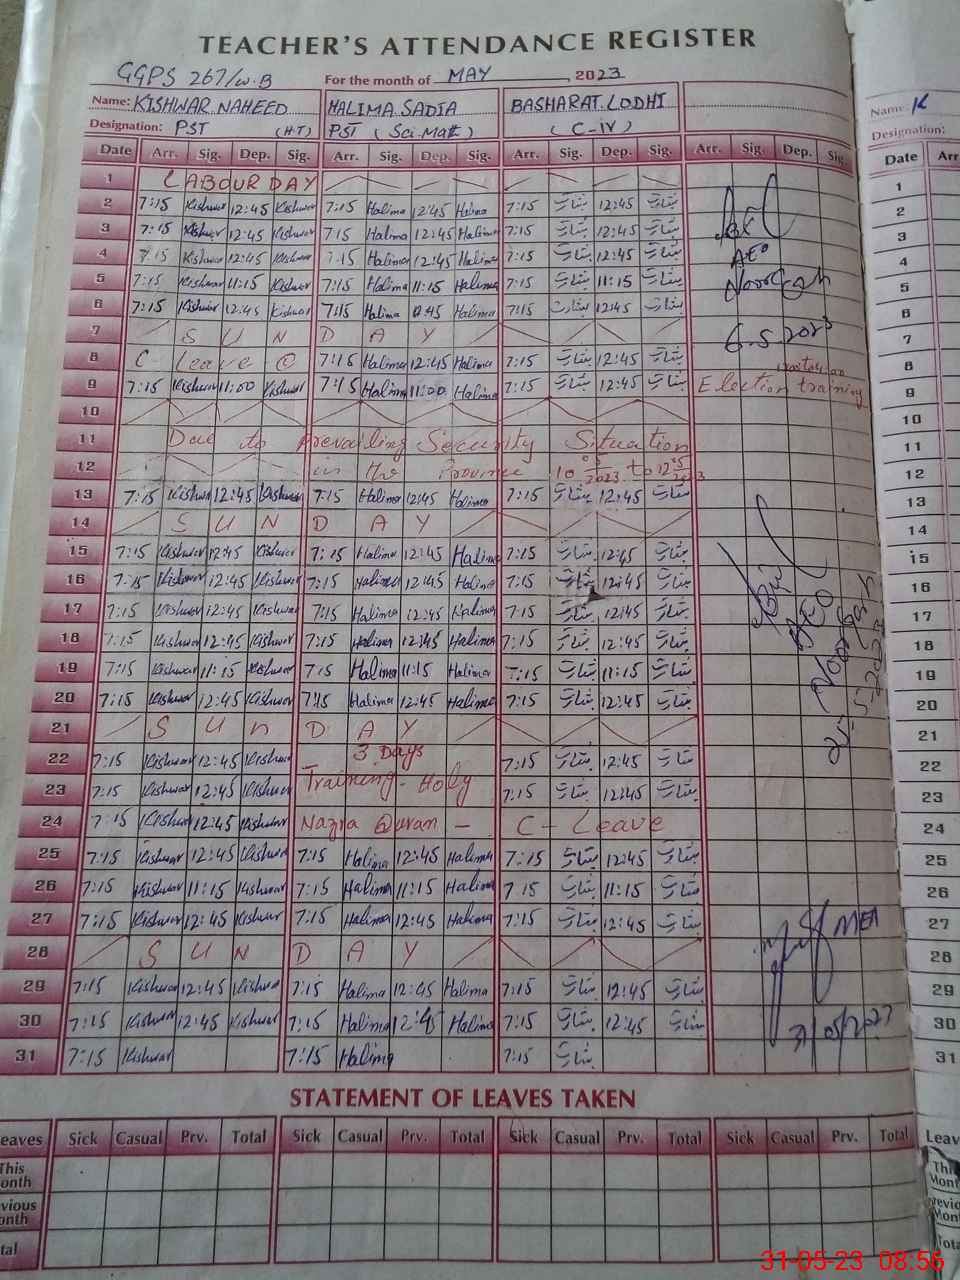 TEACHER'S ATTENDANCE REGISTER
GGPS 267/W.B For the month of MAY, 2023
Name: KISHWAR NAHEED HALIMA SADIA BASHARAT LODHI Name: K
Designation: PST (H.T) PST (Sci.Mat) (C-IV) Designation:
Date Arr. Sig. Dep. Sig. Arr. Sig. Dep. Sig. Arr. Sig. Dep. Sig. Arr. Sig. Dep. Sig. Date Arr
1 LABOUR DAY 1
2 7:15 Kishwar 12:45 Kishwar 7:15 Halima 12:45 Halima 7:15 بشارت 12:45 بشارت 2
3 7:15 Kishwar 12:45 Kishwar 7:15 Halima 12:45 Halima 7:15 بشارت 12:45 بشارت 3
4 7:15 Kishwar 12:45 Kishwar 7:15 Halima 12:45 Halima 7:15 بشارت 12:45 بشارت AEO 4
5 7:15 Kishwar 11:15 Kishwar 7:15 Halima 11:15 Halima 7:15 بشارت 11:15 بشارت 5
6 7:15 Kishwar 12:45 Kishwar 7:15 Halima 12:45 Halima 7:15 بشارت 12:45 بشارت 6
7 SUNDAY 6.5.2023 7
8 C- Leave 7:15 Halima 12:45 Halima 7:15 بشارت 12:45 بشارت 8
9 7:15 Kishwar 11:00 Kishwar 7:15 Halima 11:00 Halima 7:15 بشارت 12:45 بشارت Election training 9
10 10
11 Due to Prevailing Security Situation 11
12 in the Province 10 5/2023 to 12 5/2023 12
13 7:15 Kishwar 12:45 Kishwar 7:15 Halima 12:45 Halima 7:15 بشارت 12:45 بشارت 13
14 SUNDAY 14
15 7:15 Kishwar 12:45 Kishwar 7:15 Halima 12:45 Halima 7:15 بشارت 12:45 بشارت 15
16 7:15 Kishwar 12:45 Kishwar 7:15 Halima 12:45 Halima 7:15 بشارت 12:45 بشارت 16
17 7:15 Kishwar 12:45 Kishwar 7:15 Halima 12:45 Halima 7:15 بشارت 12:45 بشارت 17
18 7:15 Kishwar 12:45 Kishwar 7:15 Halima 12:45 Halima 7:15 بشارت 12:45 بشارت 18
19 7:15 Kishwar 11:15 Kishwar 7:15 Halima 11:15 Halima 7:15 بشارت 11:15 بشارت 19
20 7:15 Kishwar 12:45 Kishwar 7:15 Halima 12:45 Halima 7:15 بشارت 12:45 بشارت 20
21 SUNDAY 21
22 7:15 Kishwar 12:45 Kishwar 3 Days 7:15 بشارت 12:45 بشارت 22
23 7:15 Kishwar 12:45 Kishwar Training - Holy 7:15 بشارت 12:45 بشارت 23
24 7:15 Kishwar 12:45 Kishwar Nazra Quran - C - Leave 24
25 7:15 Kishwar 12:45 Kishwar 7:15 Halima 12:45 Halima 7:15 بشارت 12:45 بشارت 25
26 7:15 Kishwar 11:15 Kishwar 7:15 Halima 11:15 Halima 7:15 بشارت 11:15 بشارت 26
27 7:15 Kishwar 12:45 Kishwar 7:15 Halima 12:45 Halima 7:15 بشارت 12:45 بشارت MEA 27
28 SUNDAY 28
29 7:15 Kishwar 12:45 Kishwar 7:15 Halima 12:45 Halima 7:15 بشارت 12:45 بشارت 29
30 7:15 Kishwar 12:45 Kishwar 7:15 Halima 12:45 Halima 7:15 بشارت 12:45 بشارت 31/05/2023 30
31 7:15 Kishwar 7:15 Halima 7:15 بشارت 31
STATEMENT OF LEAVES TAKEN
eaves Sick Casual Prv. Total Sick Casual Prv. Total Sick Casual Prv. Total Sick Casual Prv. Total Leav
This onth Thi Mont
vious onth revio Mont
tal Tota
31-05-23 08:56